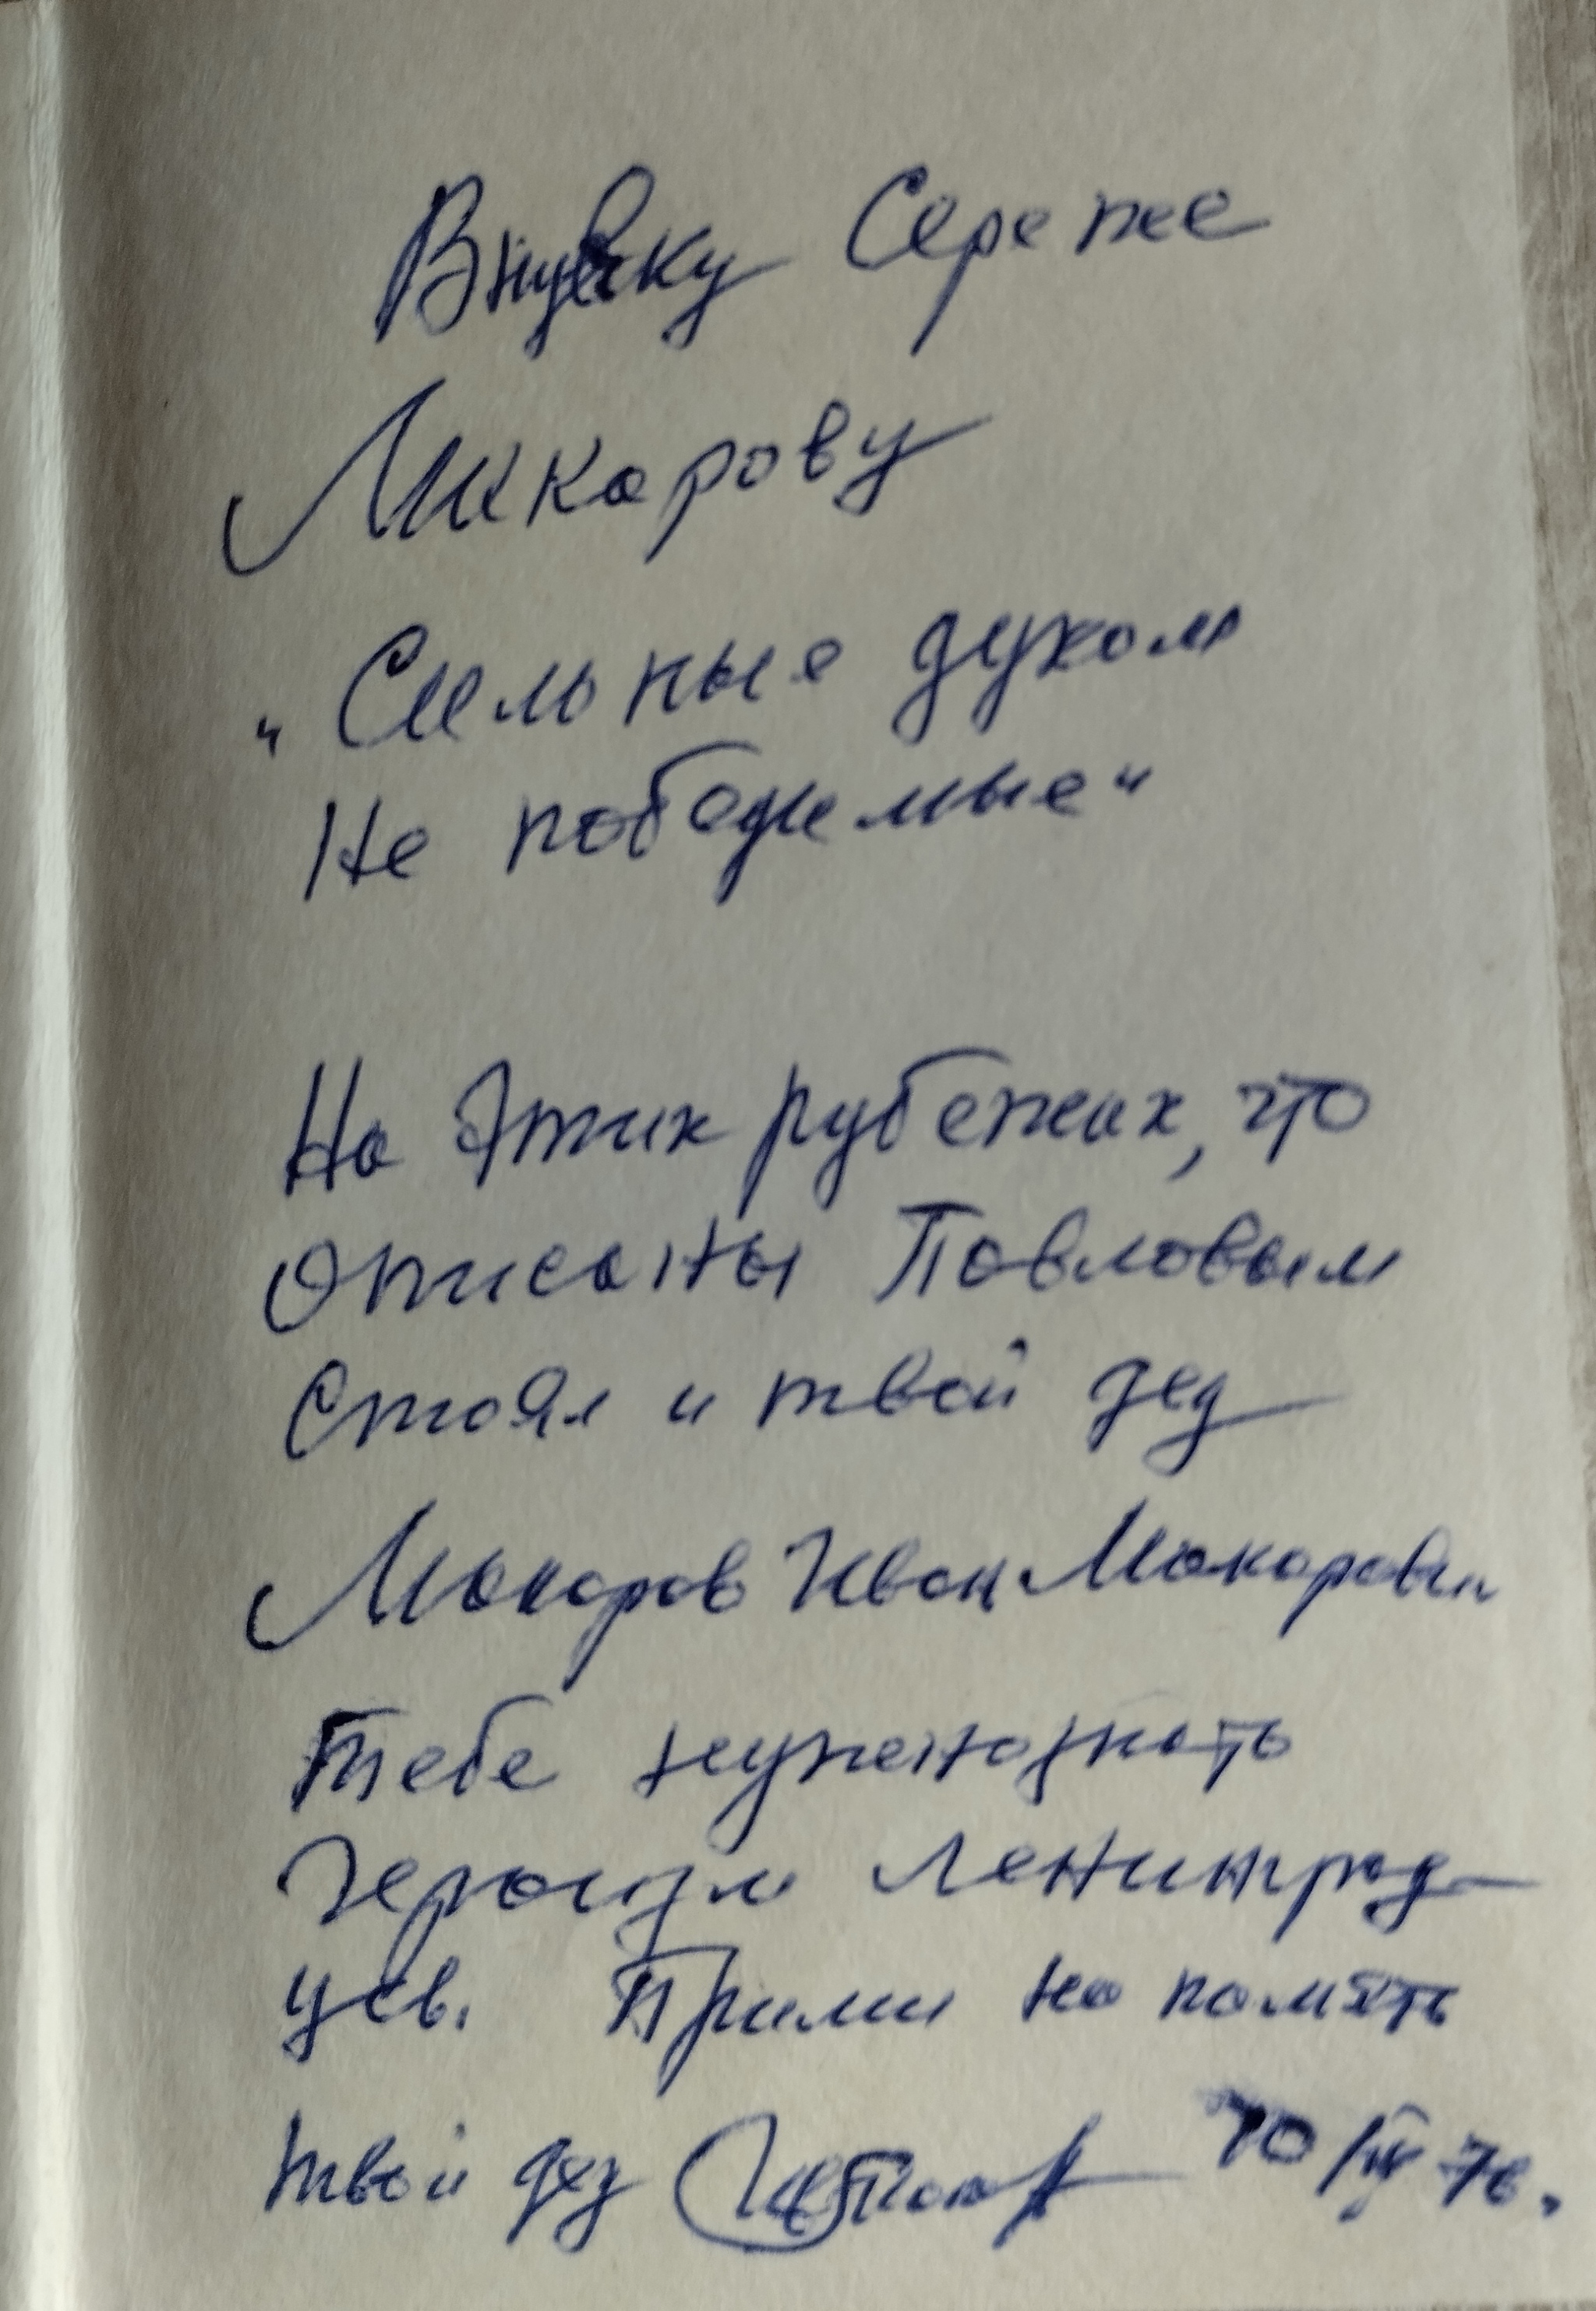 Внуку Сереже
Макарову
„Сильные духом
Не победимые"
На этих рубежах, что
описаны Павловым
Стоял и твой дед
Макаров Иван Макарович
Тебе нужно знать
Героизм Ленинград-
цев. Прими на память
твой дед 10/III 76.